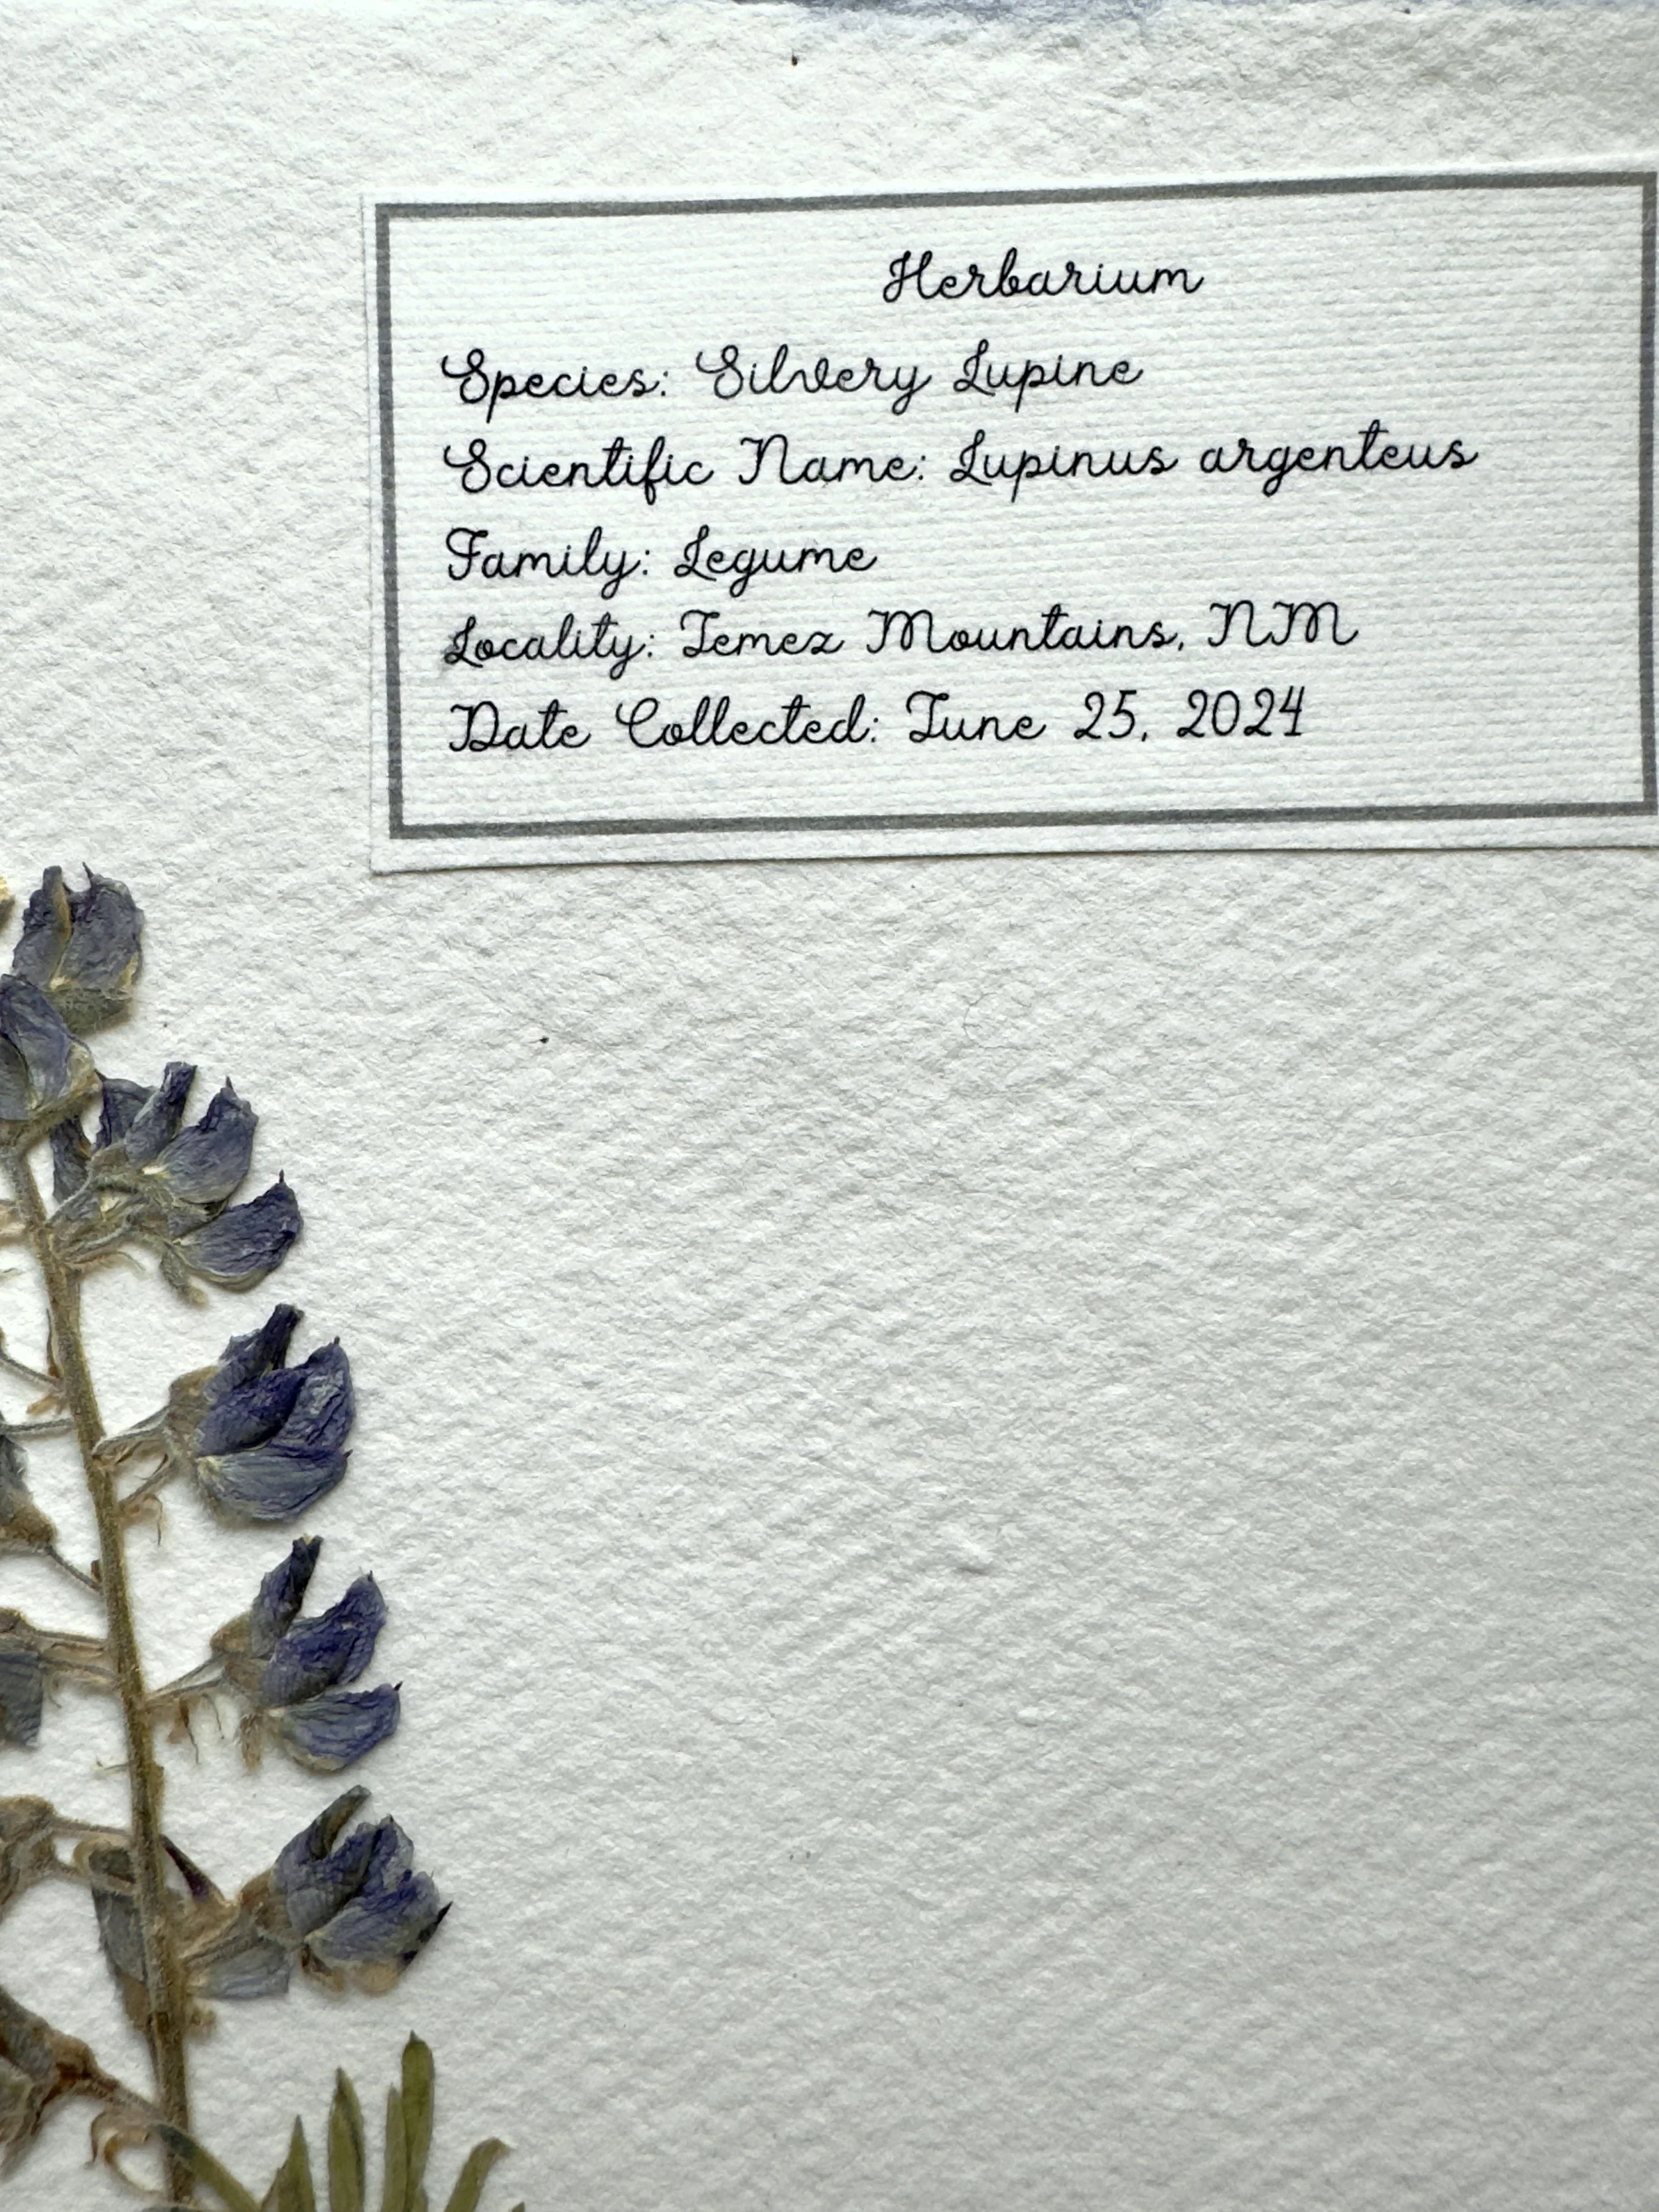 Herbarium
Species: Silvery Lupine
Scientific Name: Lupinus argenteus
Family: Legume
Locality: Jemez Mountains, NM
Date Collected: June 25, 2024